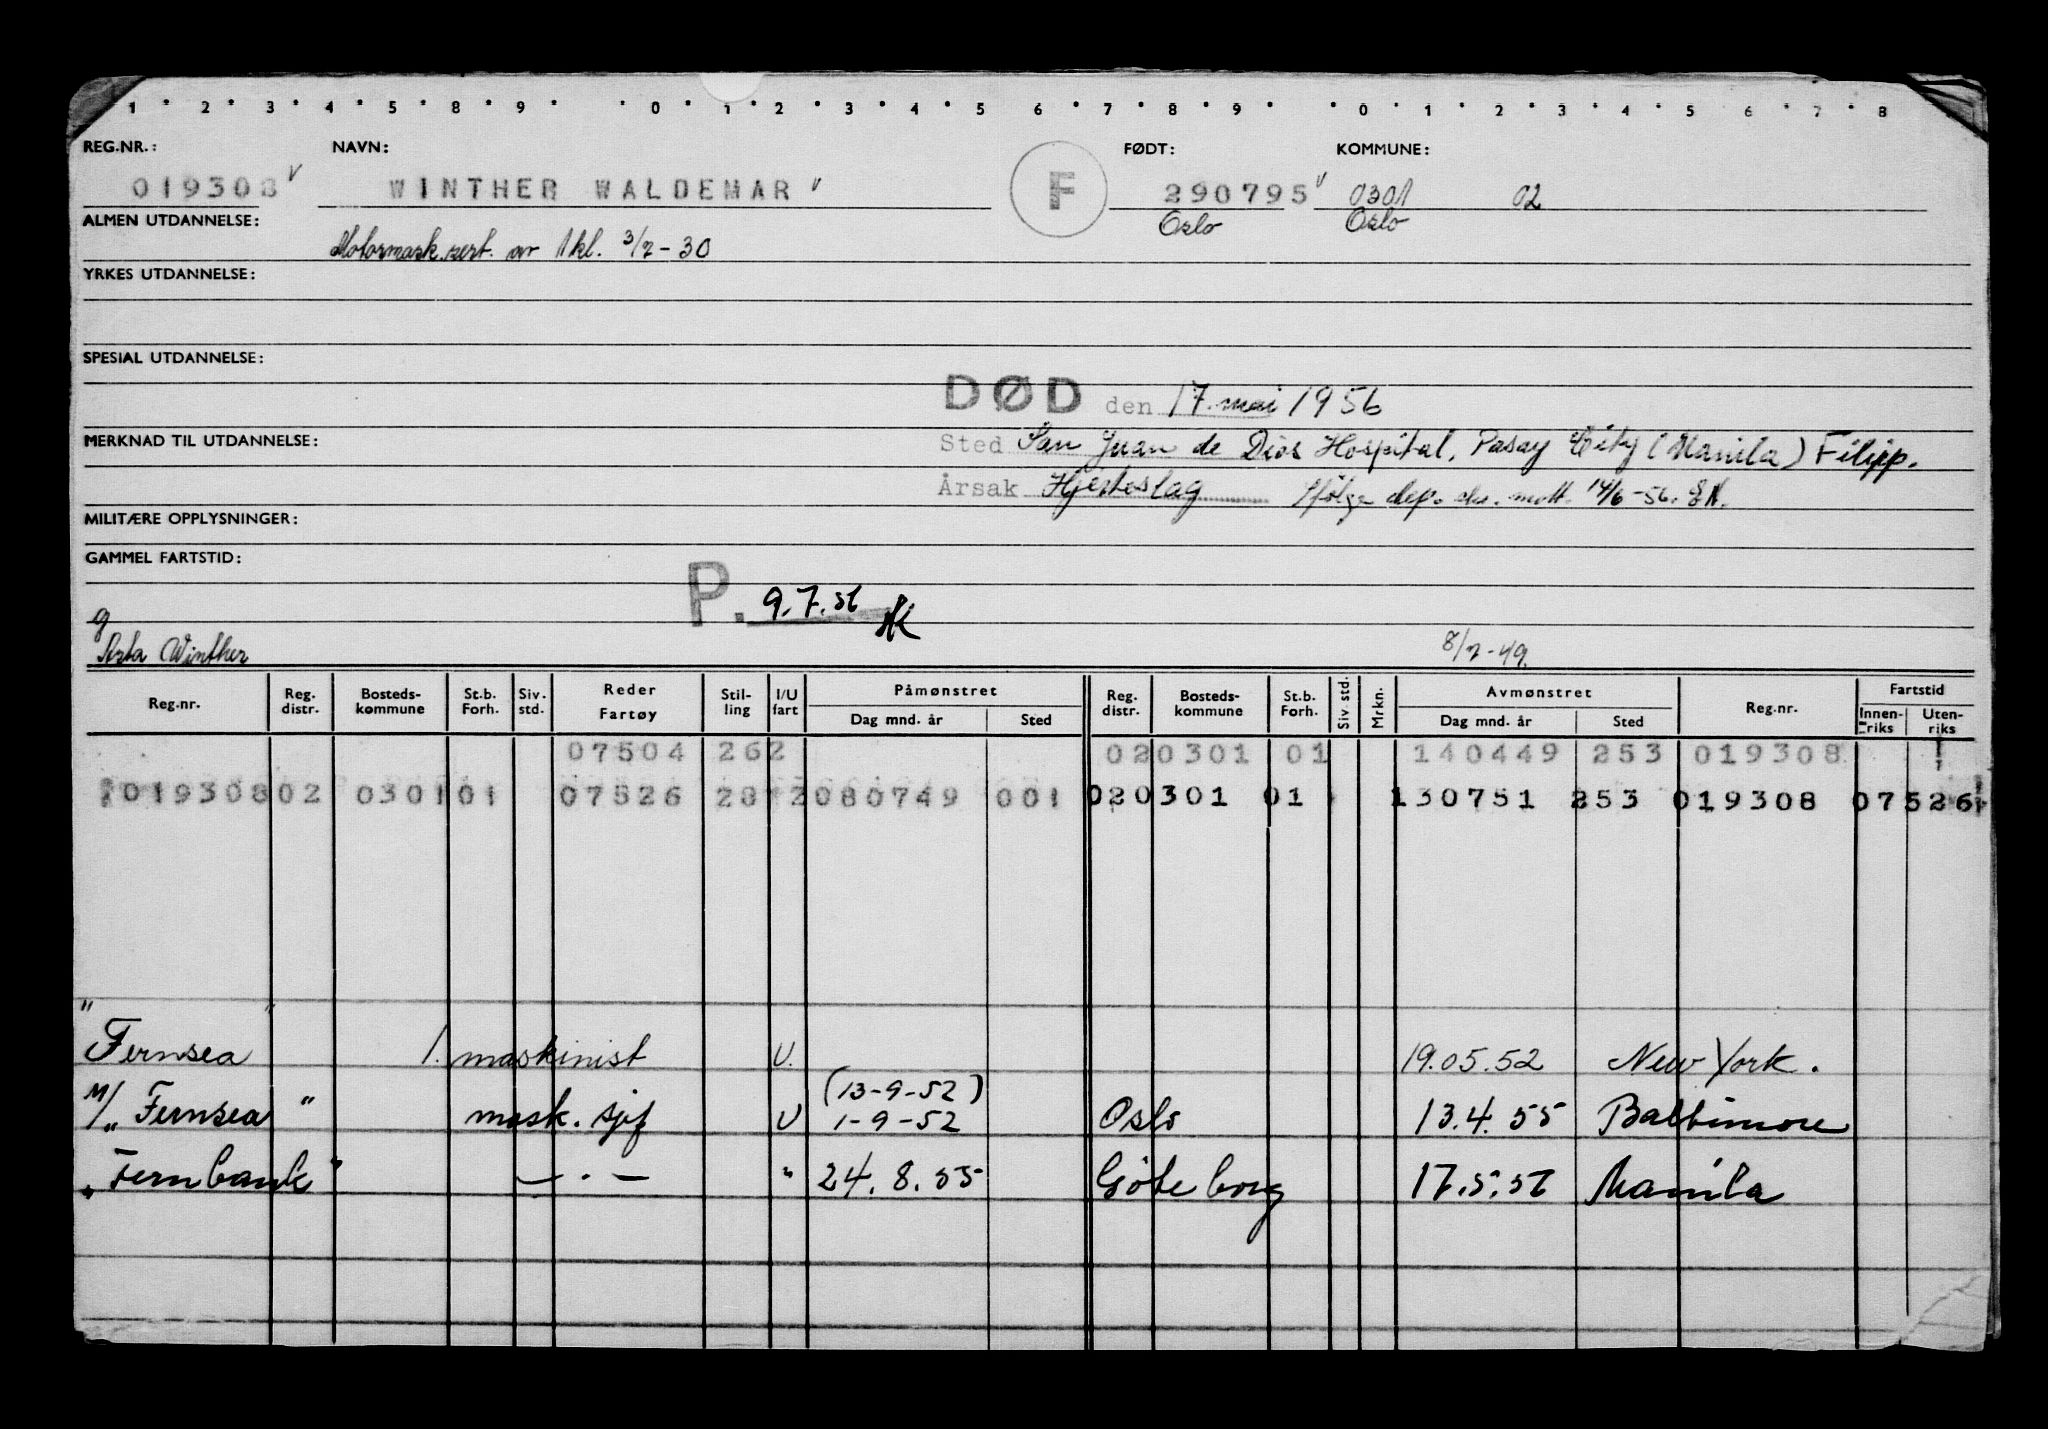 1 2 3 4 5 8 9 0 1 2 3 4 5 6 7 8 9 0 1 2 3 4 5 6 7 8
REG.NR.: NAVN: FØDT: KOMMUNE:
019308 v WINTHER WALDEMAR v F 290795 v 0301 02
ALMEN UTDANNELSE: Oslo Oslo
Motormask.sert. av 1 kl. 3/2-30
YRKES UTDANNELSE:
SPESIAL UTDANNELSE:
DØD den 17. mai 1956
MERKNAD TIL UTDANNELSE: Sted San Juan de Dios Hospital, Pasay City (Manila) Filipp.
Årsak Hjerteslag Ifølge dep. skr. mott. 14/6-56.
MILITÆRE OPPLYSNINGER:
GAMMEL FARTSTID:
P. 9.7.56
g
Winther 8/7-49.
Reg.nr. Reg. distr. Bosteds-kommune St.b. Forh. Siv. std. Reder Fartøy Stil-ling I/U fart Påmønstret Dag mnd. år Sted Reg. distr. Bosteds-kommune St.b. Forh. Siv. std. Mrkn. Avmønstret Dag mnd. år Sted Reg.nr. Fartstid Innen-riks Uten-riks
07504 262 020301 01 140449 253 019308
019308 02 0301 01 07526 281 2 080749 001 020301 01 130751 253 019308 07526
" "
Fernsea 1. maskinist U. 19.05.52 New York.
(13-9-52)
M/" Fernsea " mask. sjef U 1-9-52 Oslo 13.4.55 Baltimore
" Fernbank " — . — " 24.8.55 Göteborg 17.5.56 Manila